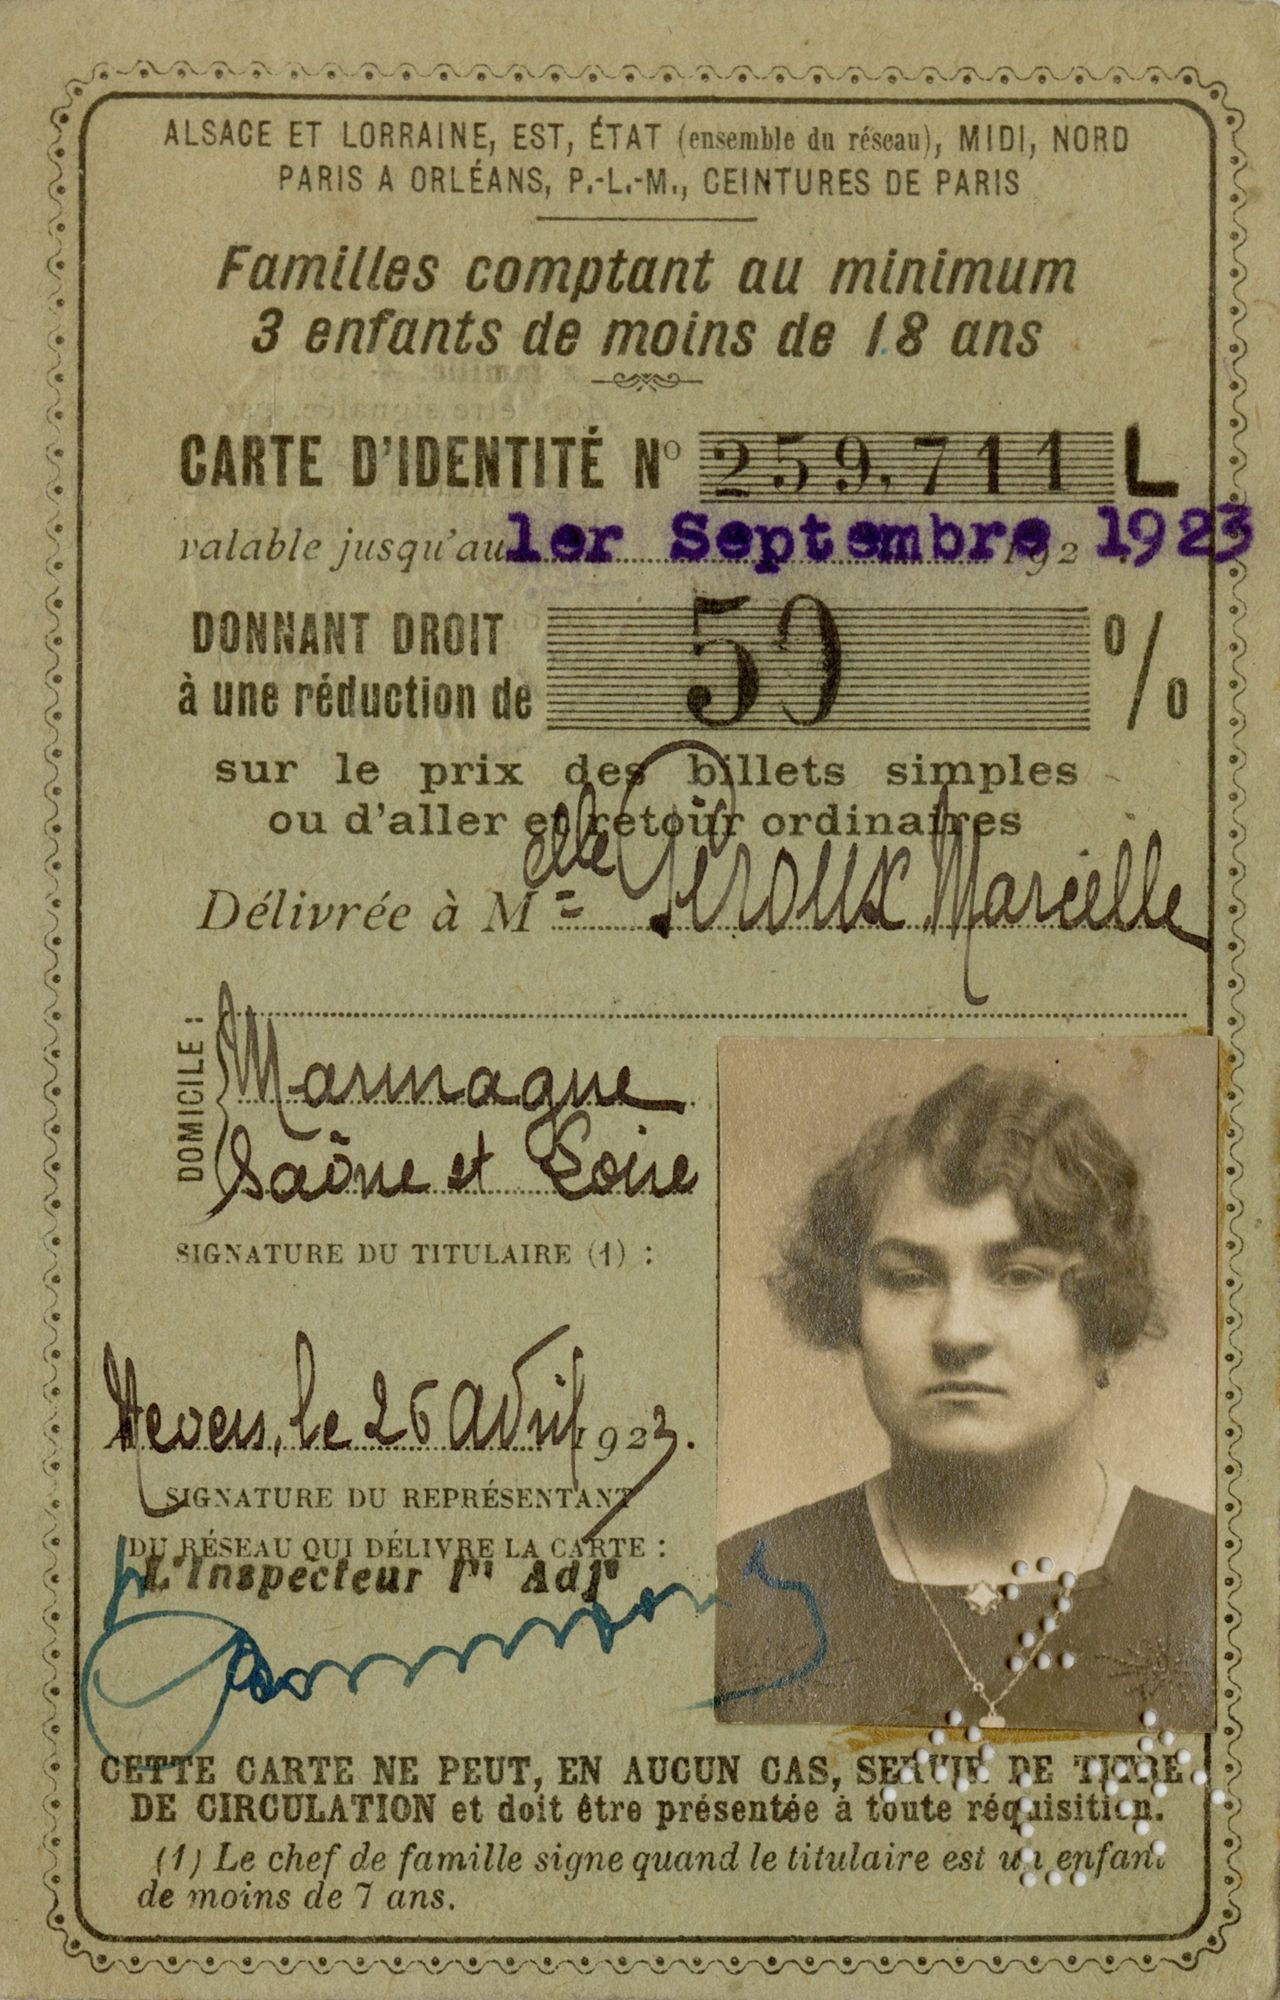 ALSACE ET LORRAINE, EST, ÉTAT (ensemble du réseau), MIDI, NORD
PARIS A ORLÉANS, P.-L.-M., CEINTURES DE PARIS
Familles comptant au minimum
3 enfants de moins de 18 ans
CARTE D'IDENTITÉ No 259.711 L
valable jusqu'au 1er Septembre 192 1923
DONNANT DROIT
à une réduction de 50 %
sur le prix des billets simples
ou d'aller et retour ordinaires
Délivrée à M elle Giroux Marcelle
DOMICILE :
Marmagne
Saône et Loire
SIGNATURE DU TITULAIRE (1) :
Nevers, le 26 Avril 1923.
SIGNATURE DU REPRÉSENTANT
DU RÉSEAU QUI DÉLIVRE LA CARTE :
L'Inspecteur Pal Adjt
CETTE CARTE NE PEUT, EN AUCUN CAS, SERVIR DE TITRE
DE CIRCULATION et doit être présentée à toute réquisition.
(1) Le chef de famille signe quand le titulaire est un enfant
de moins de 7 ans.